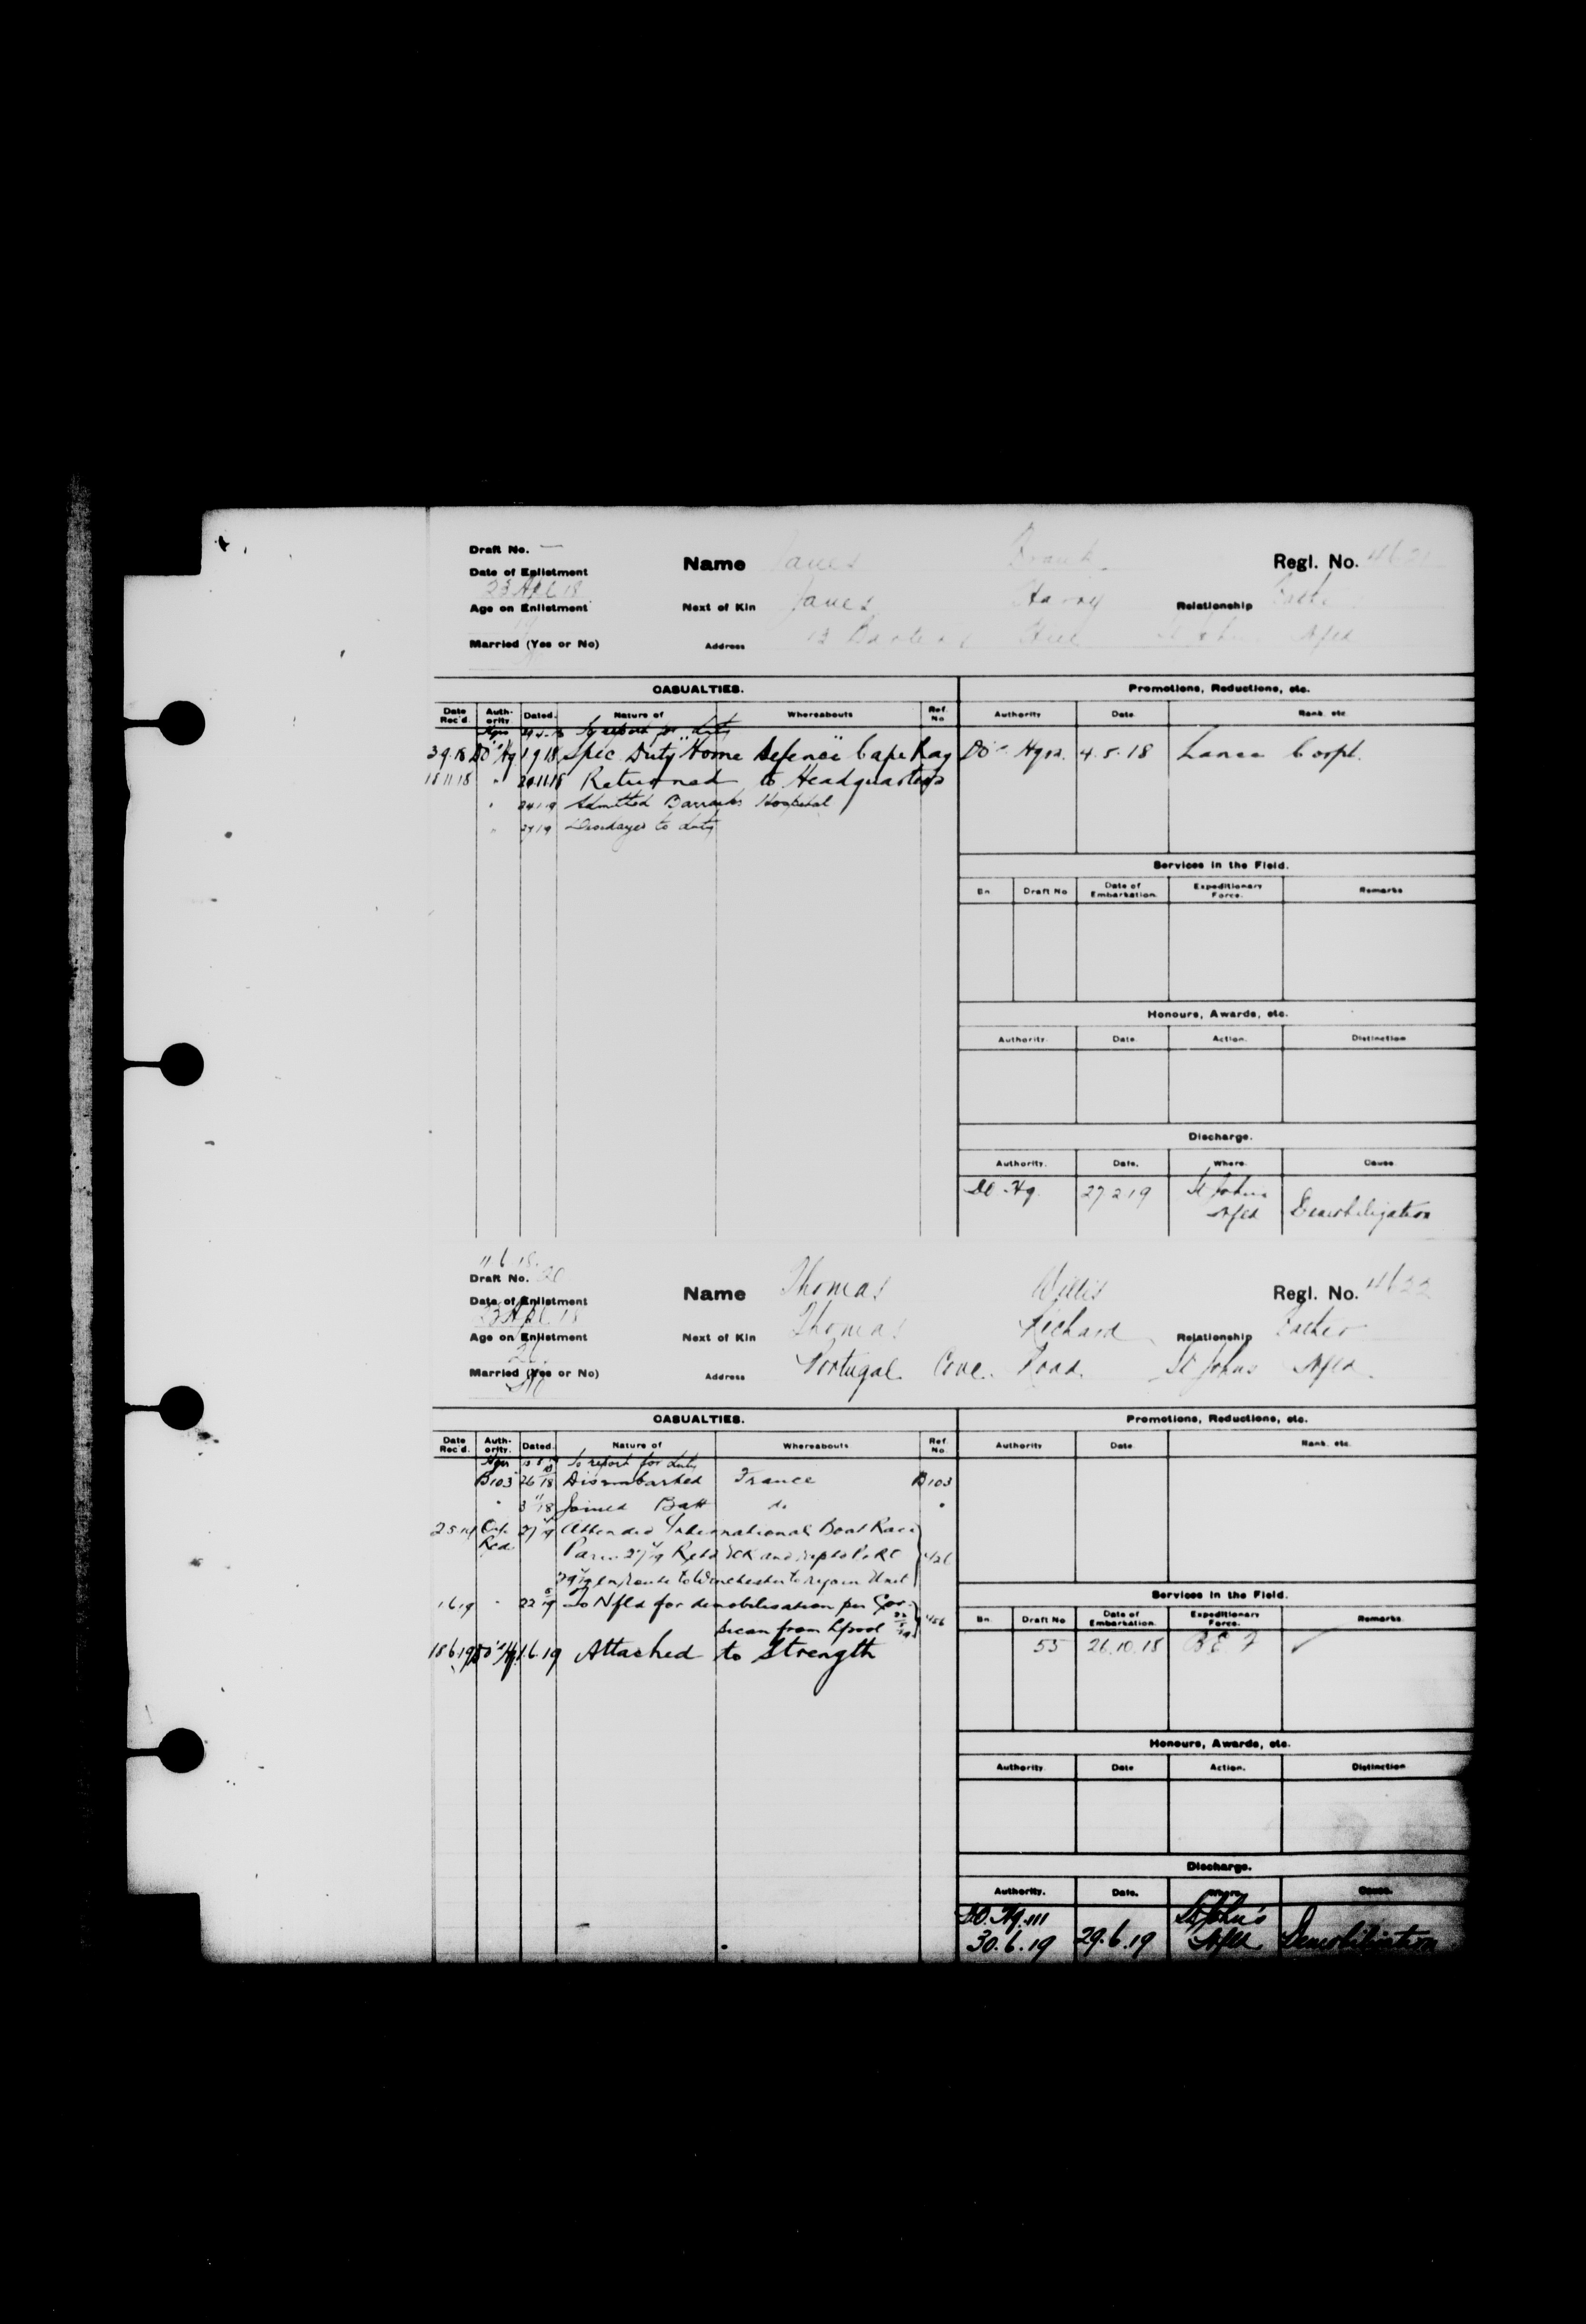 Draft No. —
Name Janes Frank Regl. No. 4621
Date of Enlistment
23 Apl 18
Age on Enlistment Next of Kin Janes Harry Relationship
Married (Yes or No) Address 12 Hill St Johns Nfld
CASUALTIES. Promotions, Reductions, etc.
Date Rec'd. Authority Dated. Nature of Whereabouts Ref. No Authority Date Rank. etc
To report for duty
3 9 18 DO Hq 1 9 18 Spec. Duty "Home Defence" Cape Ray DO Hqrs. 4.5.18 Lance Corpl.
18 11 18 " 20 11 18 Returned to Headquarters
" 24 1 19 Admitted Barracks Hospital
" Discharged to duty
Services in the Field.
Bn Draft No Date of Embarkation. Expeditionary Force. Remarks
Honours, Awards, etc.
Authority. Date. Action. Distinction
Discharge.
Authority. Date. Where. Cause
DO Hq. 27 2 19 St Johns Nfld Demobilization
11.6.18.
Draft No.
Name Thomas Willis Regl. No. 4622
Date of Enlistment
23 Apl 18
Age on Enlistment Next of Kin Thomas Richard Relationship Father
Married (Yes or No) Address Portugal Cove Road. St Johns Nfld.
CASUALTIES. Promotions, Reductions, etc.
Date Rec'd. Authority. Dated. Nature of Whereabouts Ref. No. Authority Date Rank. etc.
To report for duty
B103 26 10/18 Disembarked France B103
" 3 11/18 Joined Batt do "
27 4/19 Attended International Boat Race
Paris 27 4/19 Retd UK and
29 4/19 en route to Winchester to rejoin Unit
1 6 19 " 22 5/19 To Nfld for demobilisation per Cor-
sican from Lpool 22 5/19
18 6 19 DO Hq 1.6.19 Attached to Strength
Services in the Field.
Bn. Draft No Date of Embarkation. Expeditionary Force. Remarks.
55 26.10.18 B E F ✓
Honours, Awards, etc.
Authority. Date Action. Distinction
Discharge.
Authority. Date. Where. Cause.
DO. Hq. 111
30.6.19 29.6.19 St John's Nfld Demobilization